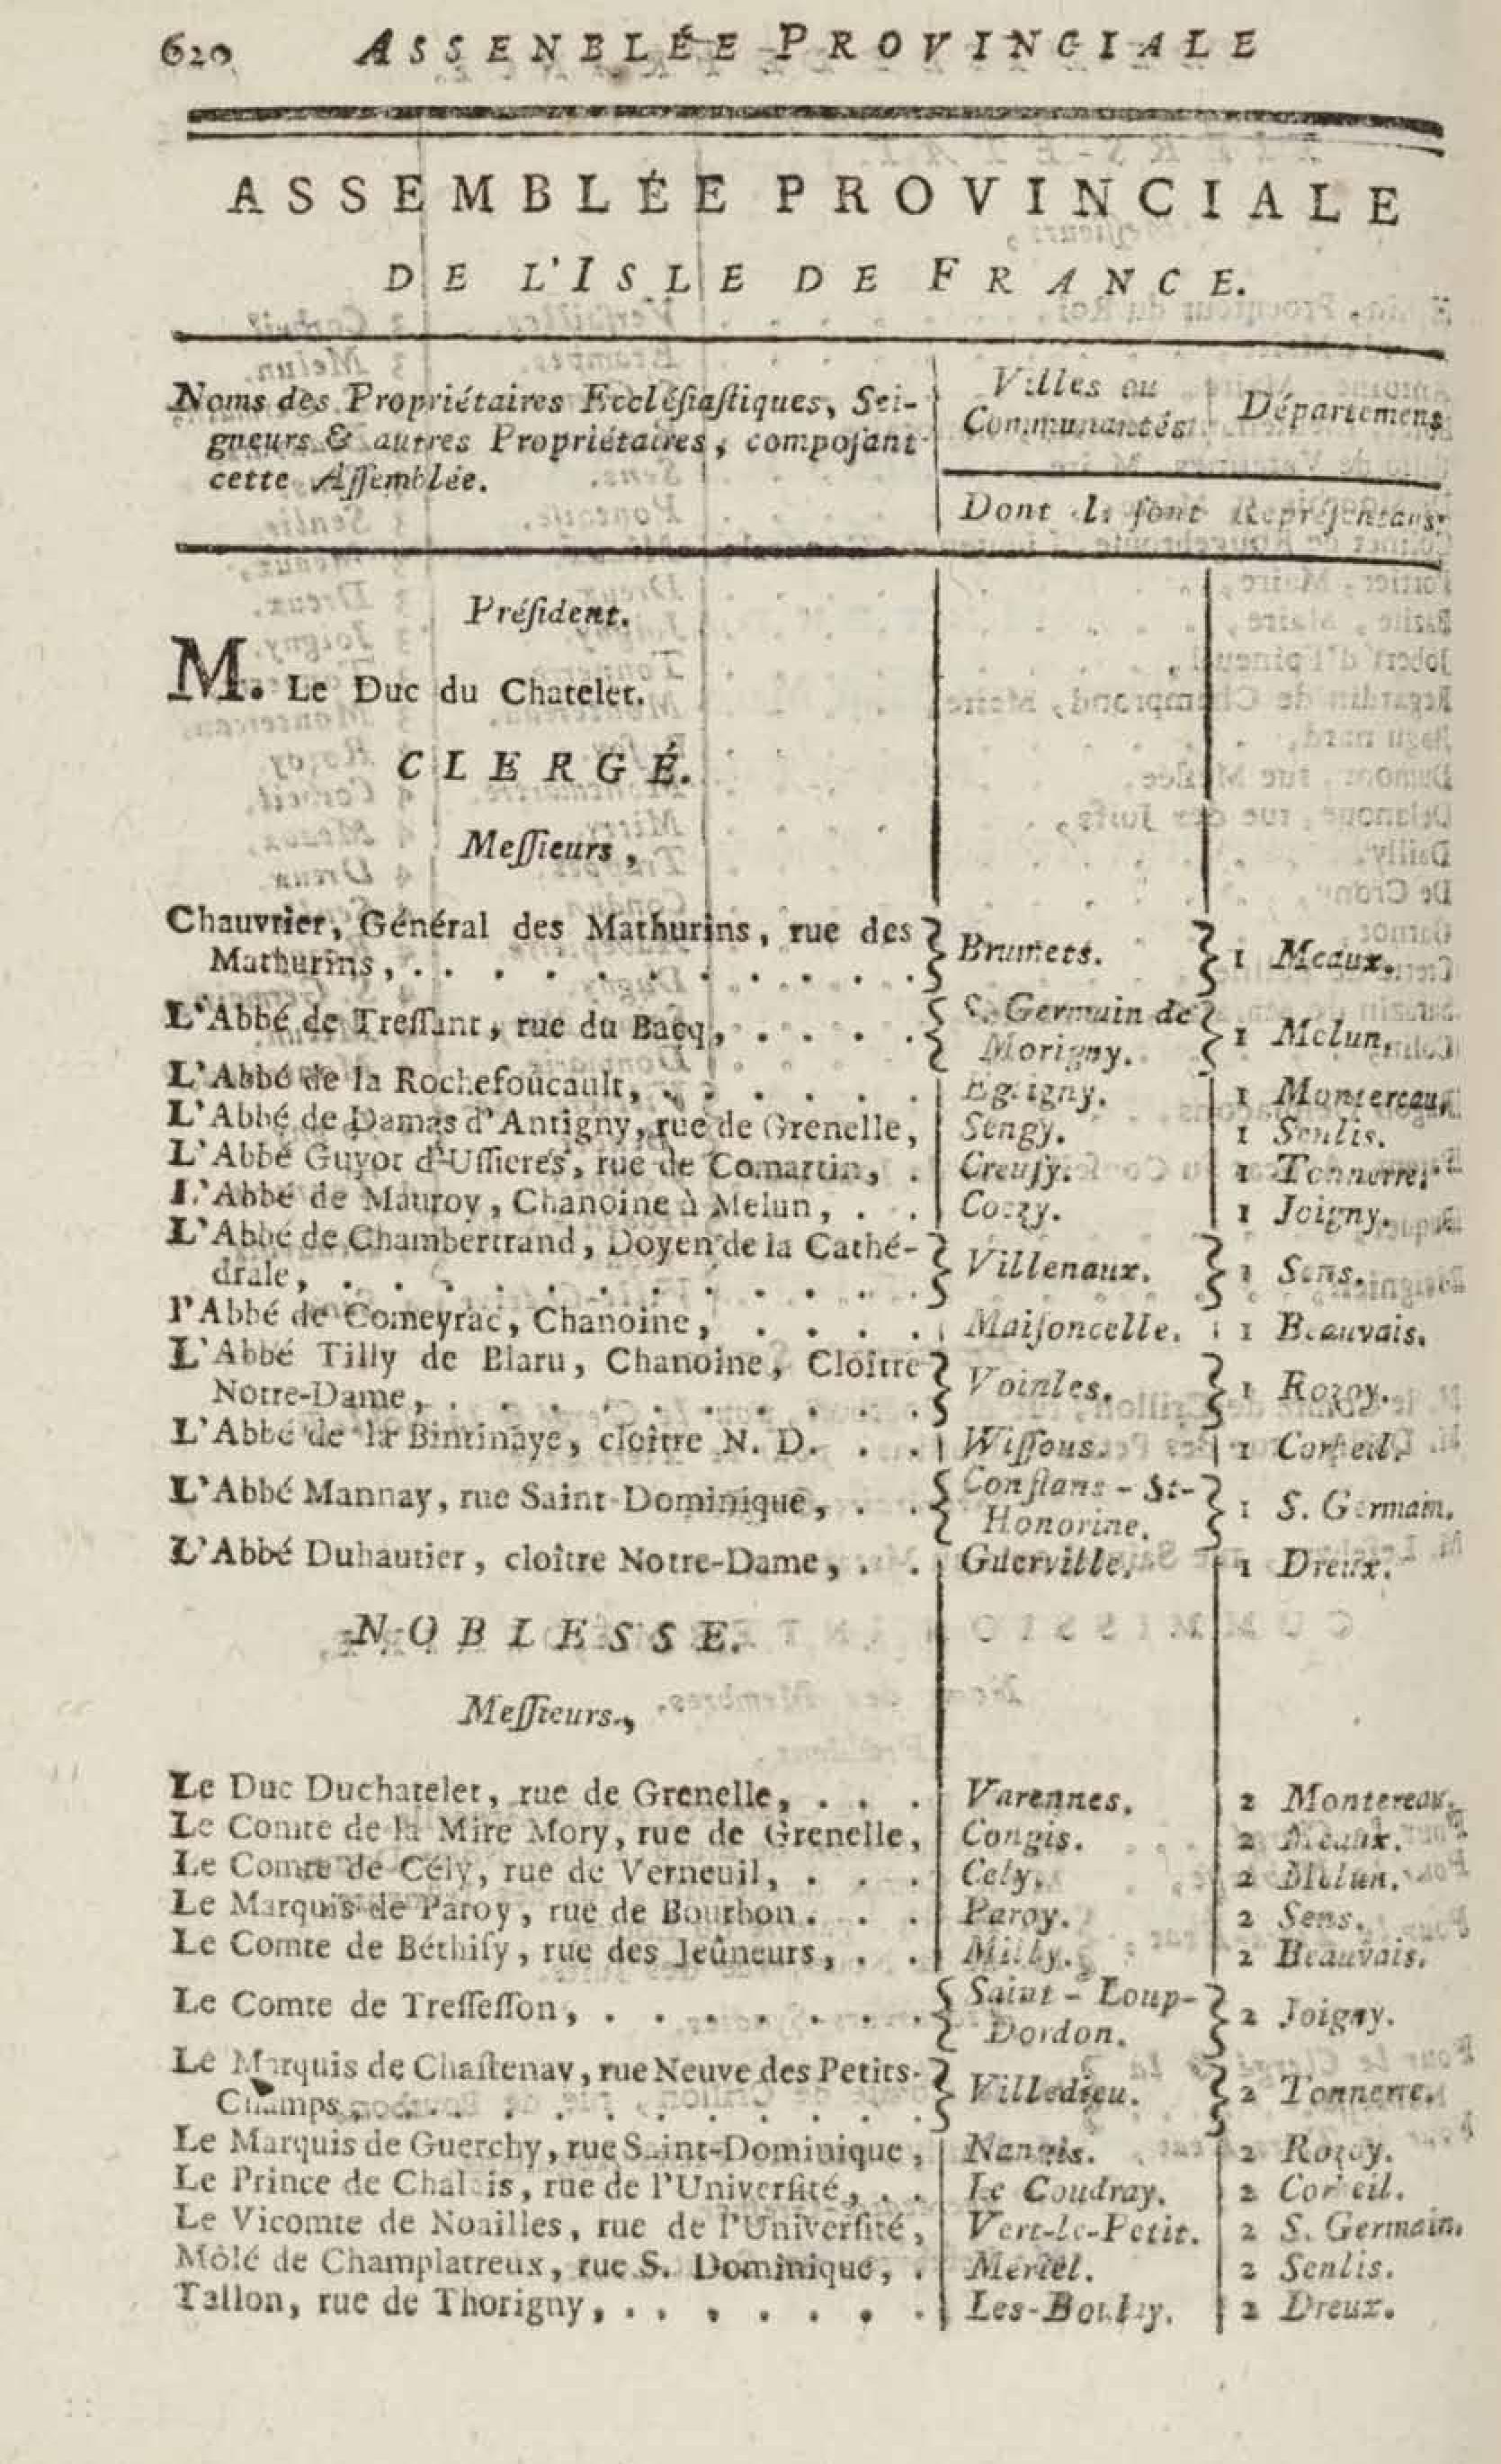 620 ASSENBLÉE PROVINCIALE
ASSEMBLÉE PROVINCIALE
DE L'ISLE DE FRANCE.
Noms des Propriétaires Eccléſiaſtiques, Sei-
gneurs & autres Propriétaires, compoſant
cette Aſſemblée.
Villes ou
Communautés
Départemens
Dont ils ſont Repréſentans.
Préſident.
M. Le Duc du Chatelet.
CLERGÉ.
Meſſieurs,
Chauvrier, Général des Mathurins, rue des
Mathurins, . . . . . . . . . . . Brumets. 1 Meaux.
L'Abbé de Treſſant, rue du Bacq, . . . . S. Germain de
Morigny. 1 Melun.
L'Abbé de la Rochefoucault, . . . . . . Egligny. 1 Montereau.
L'Abbé de Damas d'Antigny, rue de Grenelle, Sengy. 1 Senlis.
L'Abbé Guyot d'Uſſieres, rue de Comartin, . Creuſy. 1 Tonnerre.
L'Abbé de Mauroy, Chanoine à Melun, . . 1 Joigny.
L'Abbé de Chambertrand, Doyen de la Cathé-
drale, . . . . . . . . . . . . . Villenaux. 1 Sens.
l'Abbé de Comeyrac, Chanoine, . . . . . Maiſoncelle. 1 Beauvais.
L'Abbé Tilly de Blaru, Chanoine, Cloître
Notre-Dame, . . . . . . . . . . . Voinles. 1 Rozoy.
L'Abbé de la Bintinaye, cloître N. D. . . . Wiſſous. 1 Corbeil.
L'Abbé Mannay, rue Saint-Dominique, . . . Conflans-St-
Honorine. 1 S. Germain.
L'Abbé Duhautier, cloître Notre-Dame, . . Guerville. 1 Dreux.
NOBLESSE.
Meſſieurs,
Le Duc Duchatelet, rue de Grenelle, . . . Varennes. 2 Montereau.
Le Comte de la Mire Mory, rue de Grenelle, Congis. 2 Meaux.
Le Comte de Cély, rue de Verneuil, . . . Cely. 2 Melun.
Le Marquis de Paroy, rue de Bourbon. . . Paroy. 2 Sens.
Le Comte de Béthiſy, rue des Jeûneurs, . . 2 Beauvais.
Le Comte de Treſſeſſon, . . . . . . . . Saint-Loup-
Dordon. 2 Joigny.
Le Marquis de Chaſtenay, rue Neuve des Petits-
Champs, . . . . . . . . . . . . Villedieu. 2 Tonnerre.
Le Marquis de Guerchy, rue Saint-Dominique, Nangis. 2 Rozoy.
Le Prince de Chalais, rue de l'Univerſité, . . Le Coudray. 2 Corbeil.
Le Vicomte de Noailles, rue de l'Univerſité, Vert-le-Petit. 2 S. Germain.
Môlé de Champlatreux, rue S. Dominique, . Meriel. 2 Senlis.
Tallon, rue de Thorigny, . . . . . . . 2 Dreux.